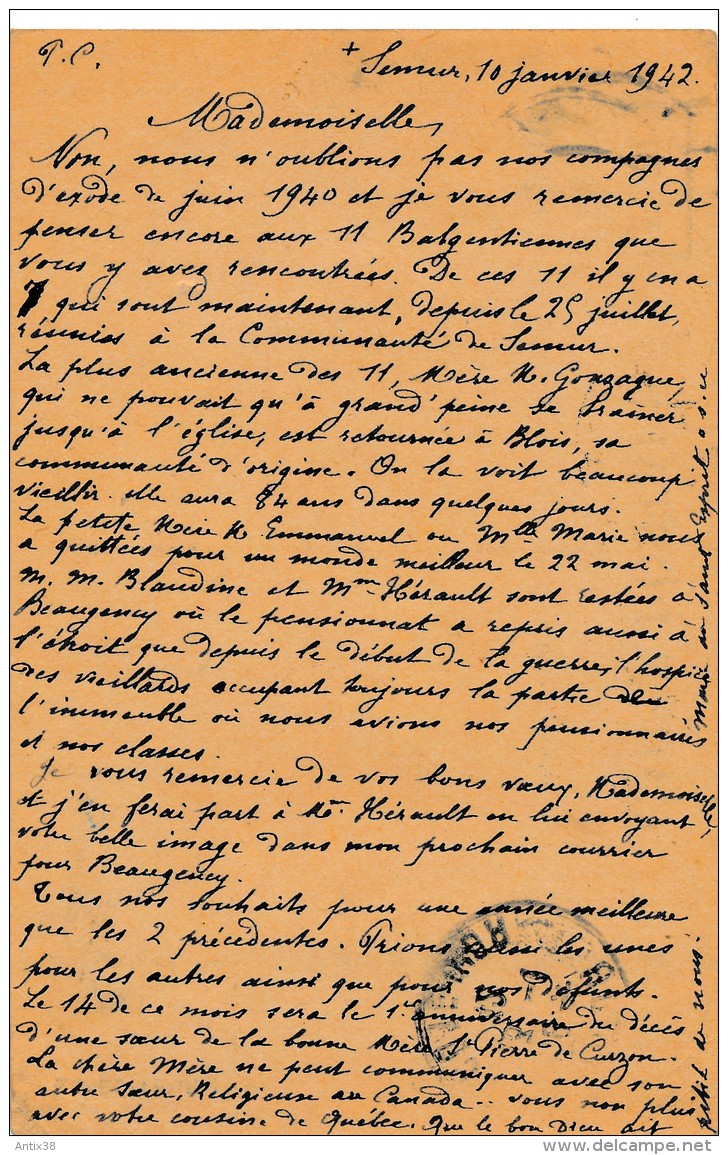 P.C. + Semur, 10 janvier 1942.
Mademoiselle,
Non, nous n'oublions pas nos compagnes
d'exode de juin 1940 et je vous remercie de
penser encore aux 11 Balgentiennes que
vous y avez rencontrées. De ces 11 il y en a
7 qui sont maintenant, depuis le 25 juillet,
réunies à la Communauté de Semur.
La plus ancienne des 11, Mère M. Gonzague,
qui ne pouvait qu'à grand'peine se traîner
jusqu'à l'église, est retournée à Blois, sa
communauté d'origine. On la voit beaucoup
vieillir. elle aura 84 ans dans quelques jours.
La petite Mère M. Emmanuel ou Mlle Marie nous
a quittées pour un monde meilleur le 22 mai.
M. M. Blandine et Mme Hérault sont restées à
Beaugency où le pensionnat a repris aussi à
l'étroit que depuis le début de la guerre, l'hospice
des vieillards occupant toujours la partie de
l'immeuble où nous avions nos pensionnaires
et nos classes.
Je vous remercie de vos bons vœux, Mademoiselle,
et j'en ferai part à Mme Hérault en lui envoyant
votre belle image dans mon prochain courrier
pour Beaugency.
Tous nos souhaits pour une année meilleure
que les 2 précédentes. Prions les unes
pour les autres ainsi que pour nos défunts.
Le 14 de ce mois sera le 1er anniversaire du décès
d'une sœur de la bonne Mère St Pierre de Curzon.
La chère Mère ne peut communiquer avec son
autre Sœur, Religieuse au Canada -- vous non plus
avec votre cousine de Québec. Que le bon Dieu ait
pitié de nous.
Marie du Saint Esprit o.s.u
Antix38